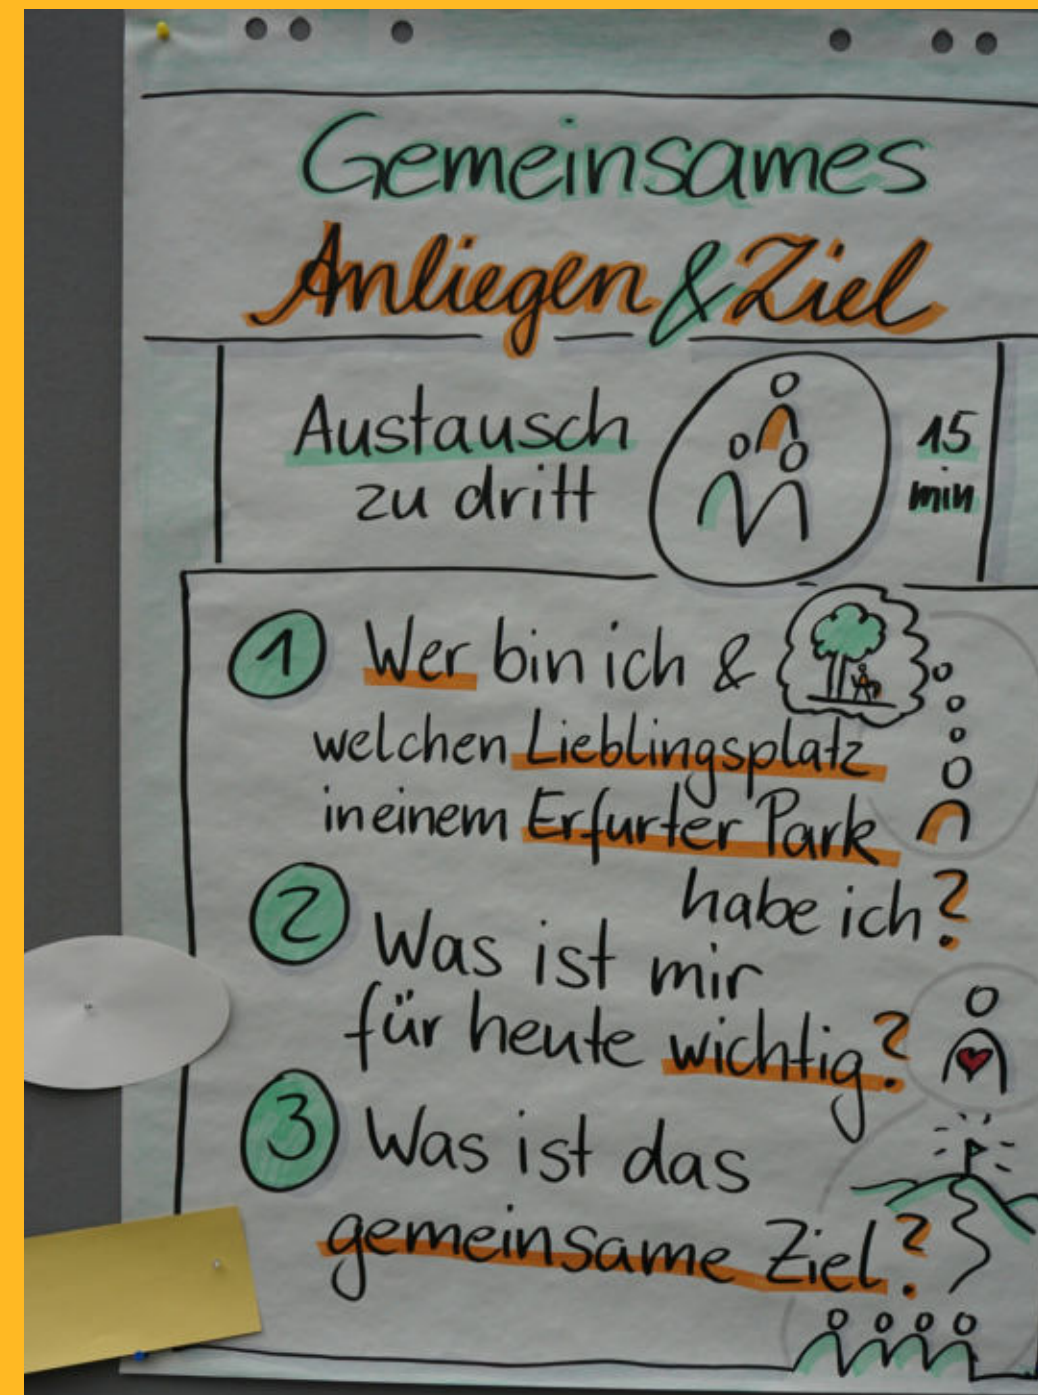 Gemeinsames
Anliegen & Ziel
Austausch
zu dritt
15
min
1 Wer bin ich &
welchen Lieblingsplatz
in einem Erfurter Park
habe ich?
2 Was ist mir
für heute wichtig?
3 Was ist das
gemeinsame Ziel?